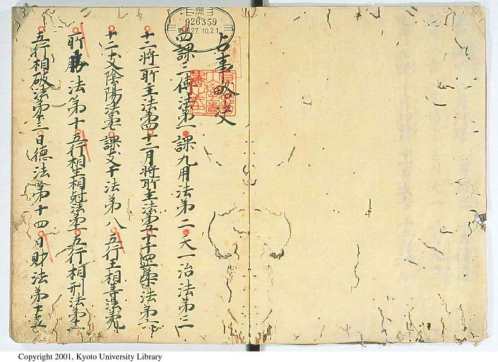 占事略决
四課三傳法第一 課九用法第二 天一治法第三
十二將所主法第四 十二月將所主法第五 十干罡柔法第六
十二支陰陽法第七 課支干法第八 五行王相等法第九
所勝法第十 五行相生相剋法第十一 五行相刑法第十二
五行相破法第十三 日德法第十四 日財法第十五
926359
Copyright 2001, Kyoto University Library